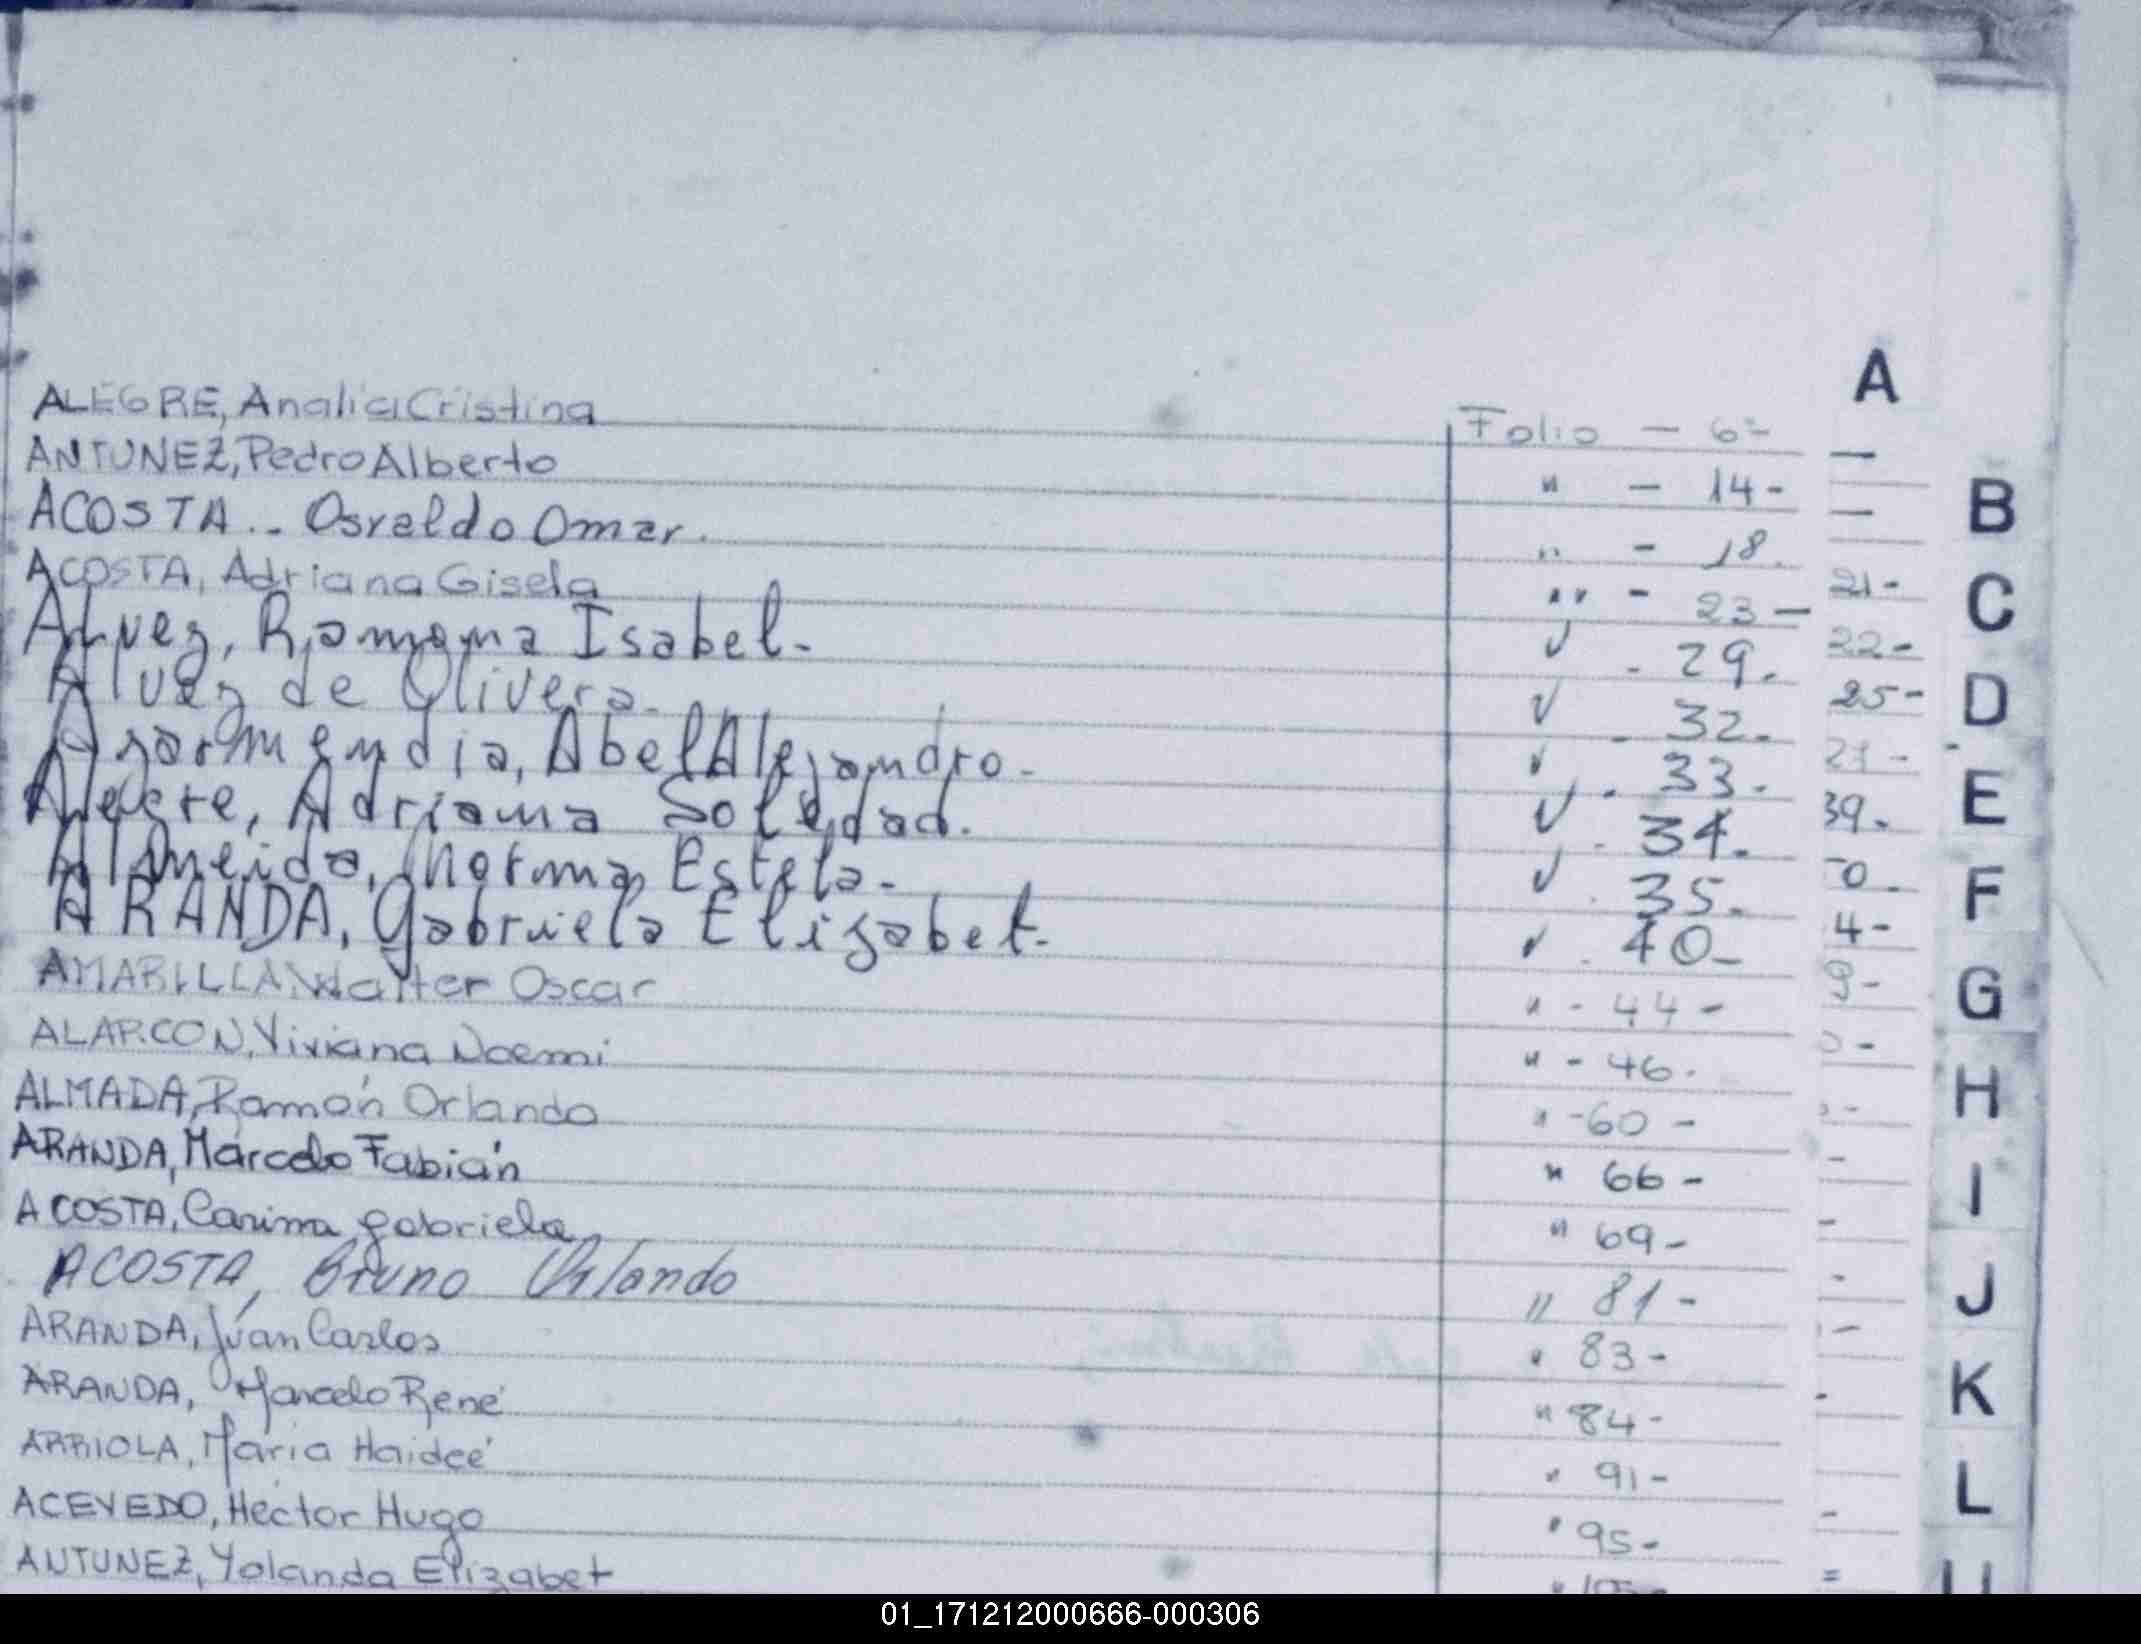 A
ALEGRE, Analia Cristina Folio - 6-
ANTUNEZ, Pedro Alberto " - 14-
B
ACOSTA.. Osvaldo Omar. " - 18.
ACOSTA, Adriana Gisela " - 23- 21-
C
Alvez, Romana Isabel. " - 29. 22-
Alvez de Olivera. " . 32. 25-
D
Azarmendia, Abel Alejandro. " . 33.
Alegre, Adriana Soledad. " . 34. 39.
E
Almeida, Norma Estela. " . 35. 0.
F
ARANDA, Gabriela Elizabet. " . 40- 4-
AMARILLA, Walter Oscar " - 44- 9-
G
ALARCON, Viviana Noemi " - 46.
ALMADA, Ramón Orlando " - 60 -
H
ARANDA, Marcelo Fabián " 66 -
I
ACOSTA, Carina Gabriela " 69-
ACOSTA, Bruno Orlando " 81-
J
ARANDA, Juan Carlos " 83-
ARANDA, Marcelo René " 84-
K
ARRIOLA, Maria Haideé " 91-
L
ACEVEDO, Hector Hugo " 95-
ANTUNEZ, Yolanda Elizabet
01_171212000666-000306